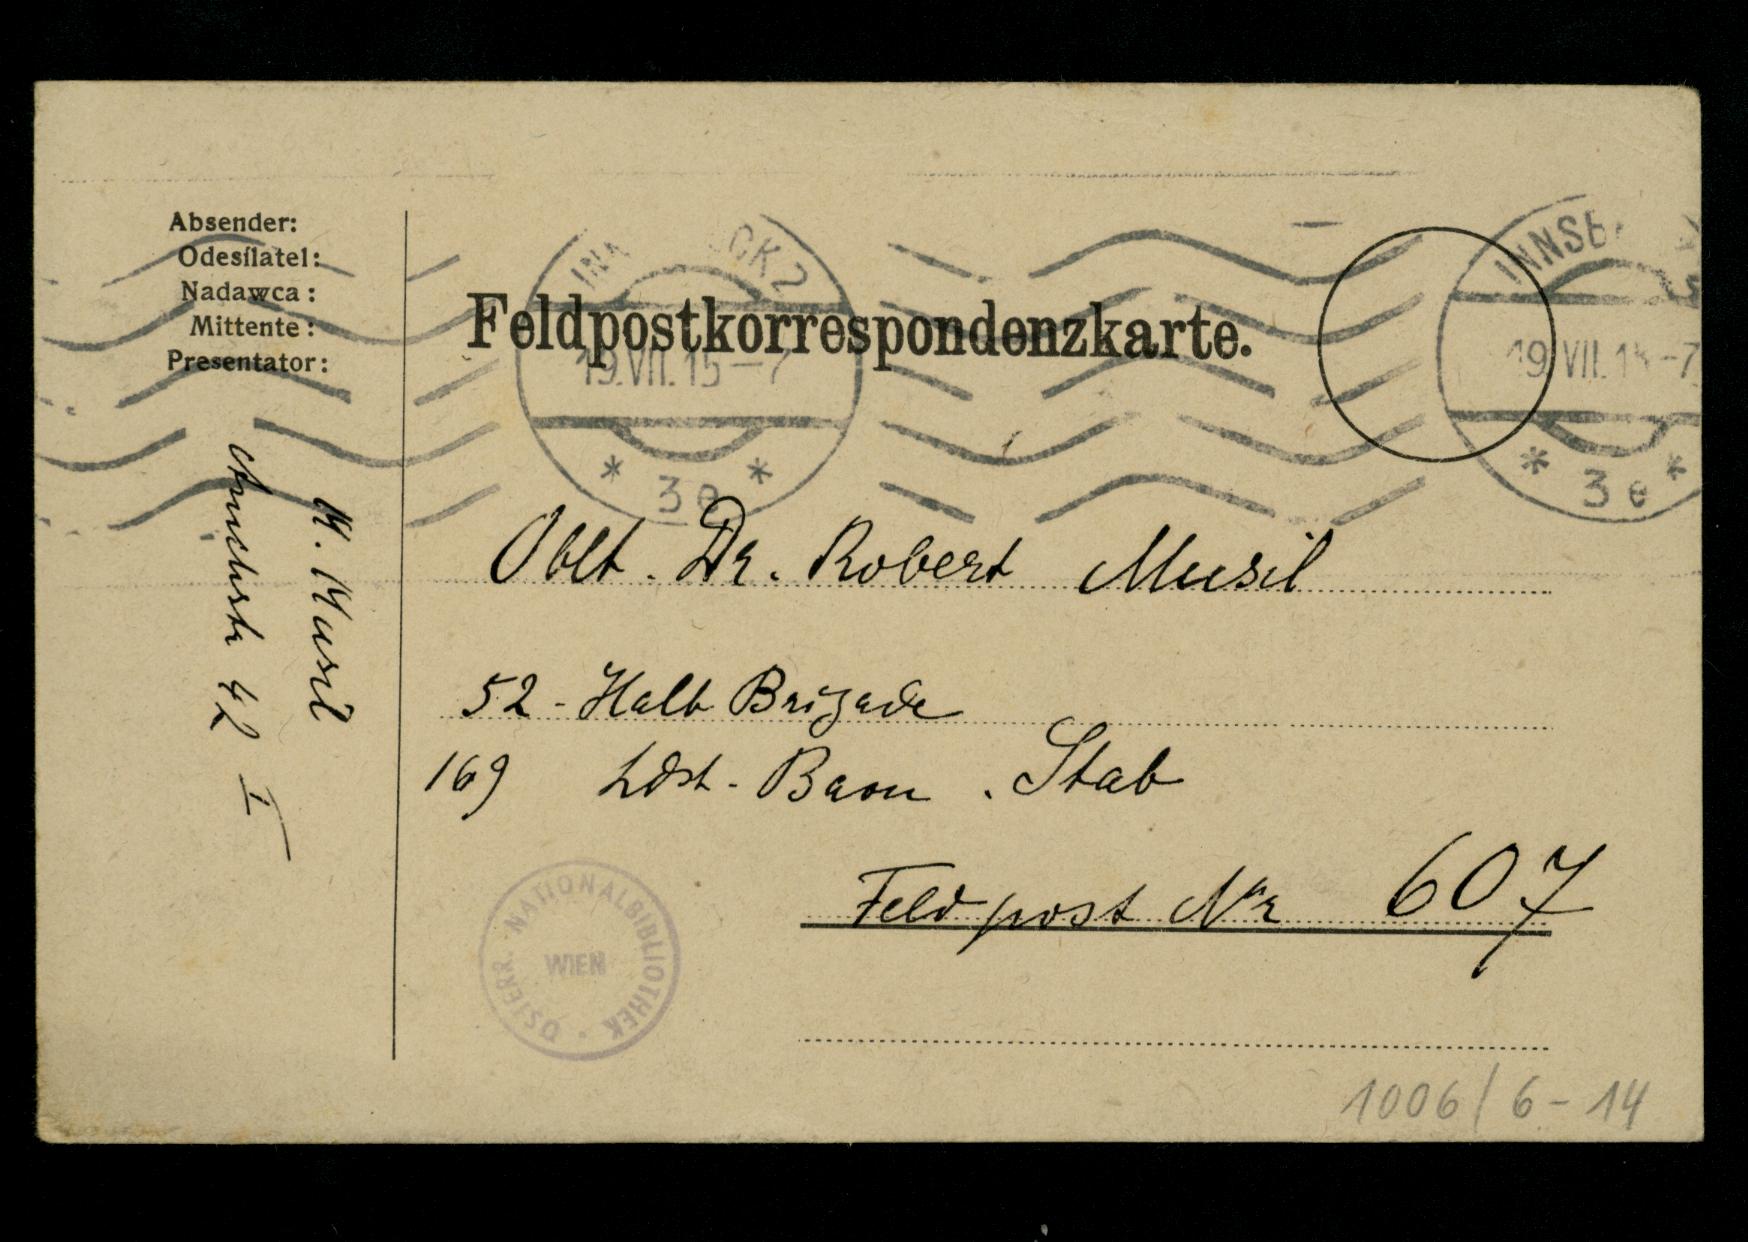 Absender:
Odesílatel:
Nadawca:
Mittente:
Presentator:
Feldpostkorrespondenzkarte.
INNSBRUCK 2
19.VII.15-7
* 3e *
INNSB
19.VII.15-7
* 3e *
M. Musil
42 I
Oblt. Dr. Robert Musil
52 - Halb Brigade
169 Ldst. Baon. Stab
Feldpost Nr 607
ÖSTERR. NATIONALBIBLIOTHEK
WIEN
1006/6-14